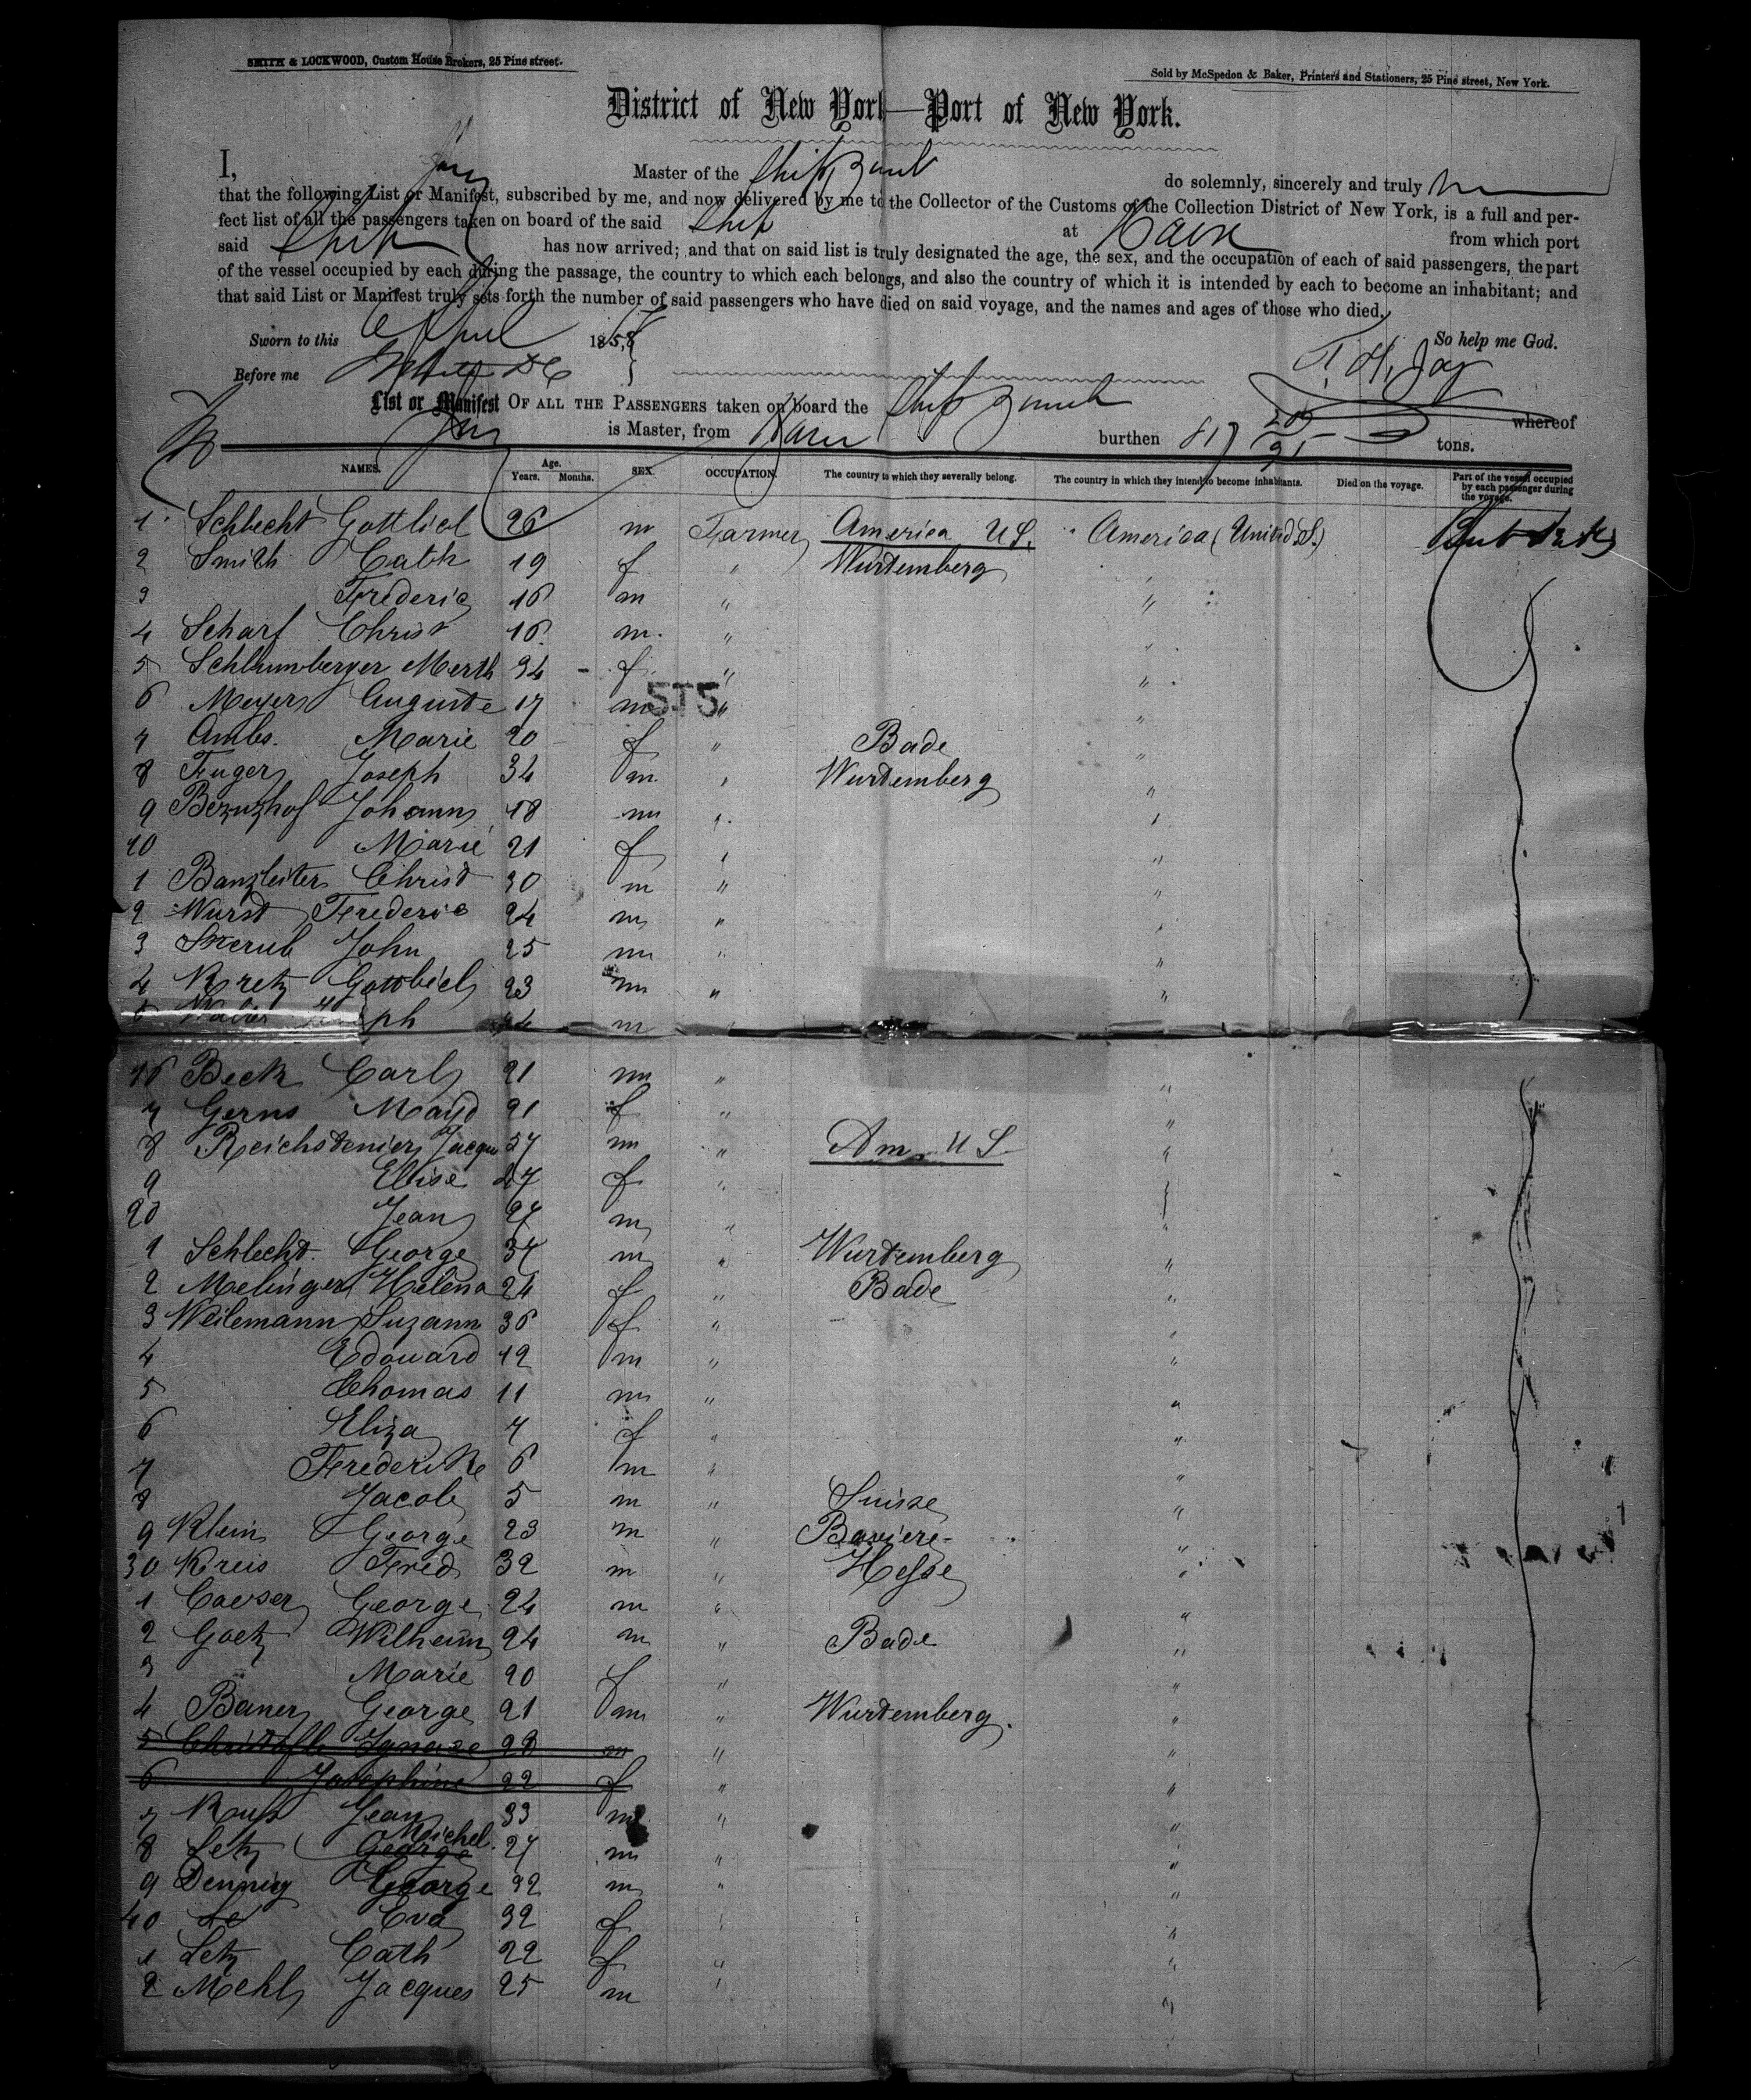 SMITH & LOCKWOOD, Custom House Brokers, 25 Pine street.
Sold by McSpedon & Baker, Printers and Stationers, 25 Pine street, New York.
District of New York—Port of New York.
I, Jay Master of the Ship Zurich do solemnly, sincerely and truly
that the following List or Manifest, subscribed by me, and now delivered by me to the Collector of the Customs of the Collection District of New York, is a full and per-
fect list of all the passengers taken on board of the said Ship at Havre from which port
said Ship has now arrived; and that on said list is truly designated the age, the sex, and the occupation of each of said passengers, the part
of the vessel occupied by each during the passage, the country to which each belongs, and also the country of which it is intended by each to become an inhabitant; and
that said List or Manifest truly sets forth the number of said passengers who have died on said voyage, and the names and ages of those who died.
Sworn to this April 1858 So help me God.
Before me T. H. Jay
List or Manifest OF ALL THE PASSENGERS taken on board the Ship Zurich whereof
Jay is Master, from Havre burthen 817 tons.
NAMES. Age. Years. Months. SEX. OCCUPATION. The country to which they severally belong. The country in which they intend to become inhabitants. Died on the voyage. Part of the vessel occupied by each passenger during the voyage.
1 Schlecht Gottliel 26 m Farmer America U S. America (United S.)
2 Smith Cath 19 f " Wurtemberg "
3 Frederic 16 m " "
4 Scharf Christ 16 m. " "
5 Schlumberger Merth 34 - f " "
515
6 Meyer Auguste 17 m " "
7 Ambs. Marie 20 f " Bade "
8 Fuger Joseph 34 m " Wurtemberg "
9 Johann 18 m " "
10 Marie 21 f " "
1 Banzleiter Christ 30 m " "
2 Wurst Frederic 24 m " "
3 John 25 m " "
4 Kretz Gottliel 23 m " "
5 m
16 Beck Carl 21 m " "
7 Gerns 21 f " "
8 Jacque 57 m " Am. U S "
9 Elise 47 f "
20 Jean 27 m " "
1 Schlecht George 37 m " Wurtemberg "
2 Melinger Helena 24 f " Bade "
3 Weilemann Suzann 36 f " "
4 Edouard 12 m " "
5 Thomas 11 m " "
6 Eliza 7 f " "
7 Frederike 6 m " "
8 Jacob 5 m " Suisse "
9 Klein George 23 m " Baviere "
30 Kreis Fred 32 m " Hesse "
1 Caesser George 24 m " "
2 Goetz Wilhelm 24 m " Bade "
3 Marie 20 f " "
4 Baner George 21 m " Wurtemberg. "
5 Christoffle Ignaze 28 m " "
6 Josephine 22 f " "
7 Jean 33 m " "
8 Letz George Michel. 27 m " "
9 George 32 m " "
40 Eva 32 f " "
1 Letz Cath 22 f " "
2 Mehl Jacques 25 m " "